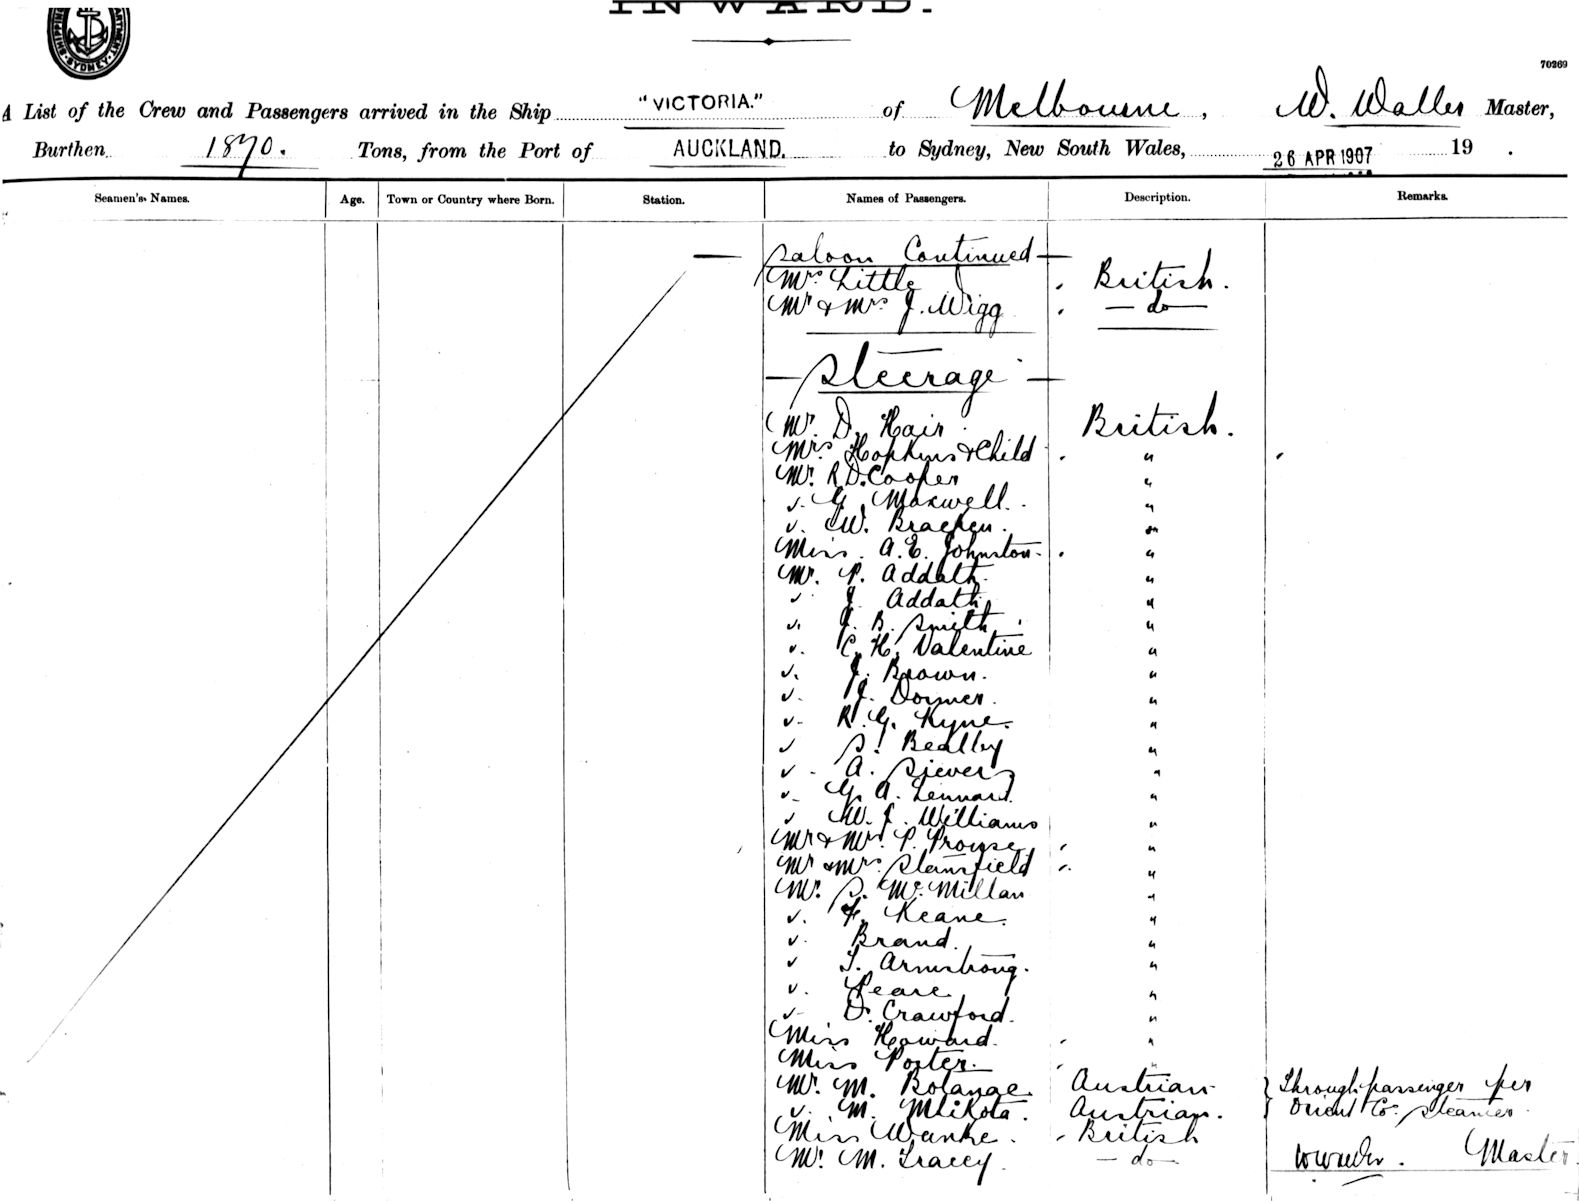 INWARD.
SYDNEY
70269
A List of the Crew and Passengers arrived in the Ship "VICTORIA." of Melbourne, W. Waller Master,
Burthen 1870. Tons, from the Port of AUCKLAND. to Sydney, New South Wales, 26 APR 1907 19 .
Seamen's Names. Age. Town or Country where Born. Station. Names of Passengers. Description. Remarks.
— Saloon Continued —
Mrs Little British.
Mr & Mrs J. Wigg — do —
— Steerage —
Mr. D. Hair British.
Mrs Hopkins & Child "
Mr. R.D. Cooper "
" G. Maxwell. "
" W. Bracken. "
Miss A.E. Johnston. "
Mr. P. Addath. "
" J. Addath. "
" J. B. Smith "
" C. H. Valentine "
" J. Brown. "
" J. Dormer. "
" R. G. Kyne. "
" S. Bealby "
" A. Sievers "
" G. A. Lennard. "
" W. J. Williams "
Mr & Mrs P. Prouse "
Mr & Mrs Stansfield "
Mr. S. McMillan "
" F. Keane. "
" Brand. "
" T. Armstrong. "
" Peare "
" D. Crawford. "
Miss Howard. "
Miss Porter. "
Mr. M. Bolanae Austrian } Through passenger per
" M. Mlikota. Austrian. } Orient Co. Steamer.
Miss Wanke. British
Mr. M. Tracey. — do — Master